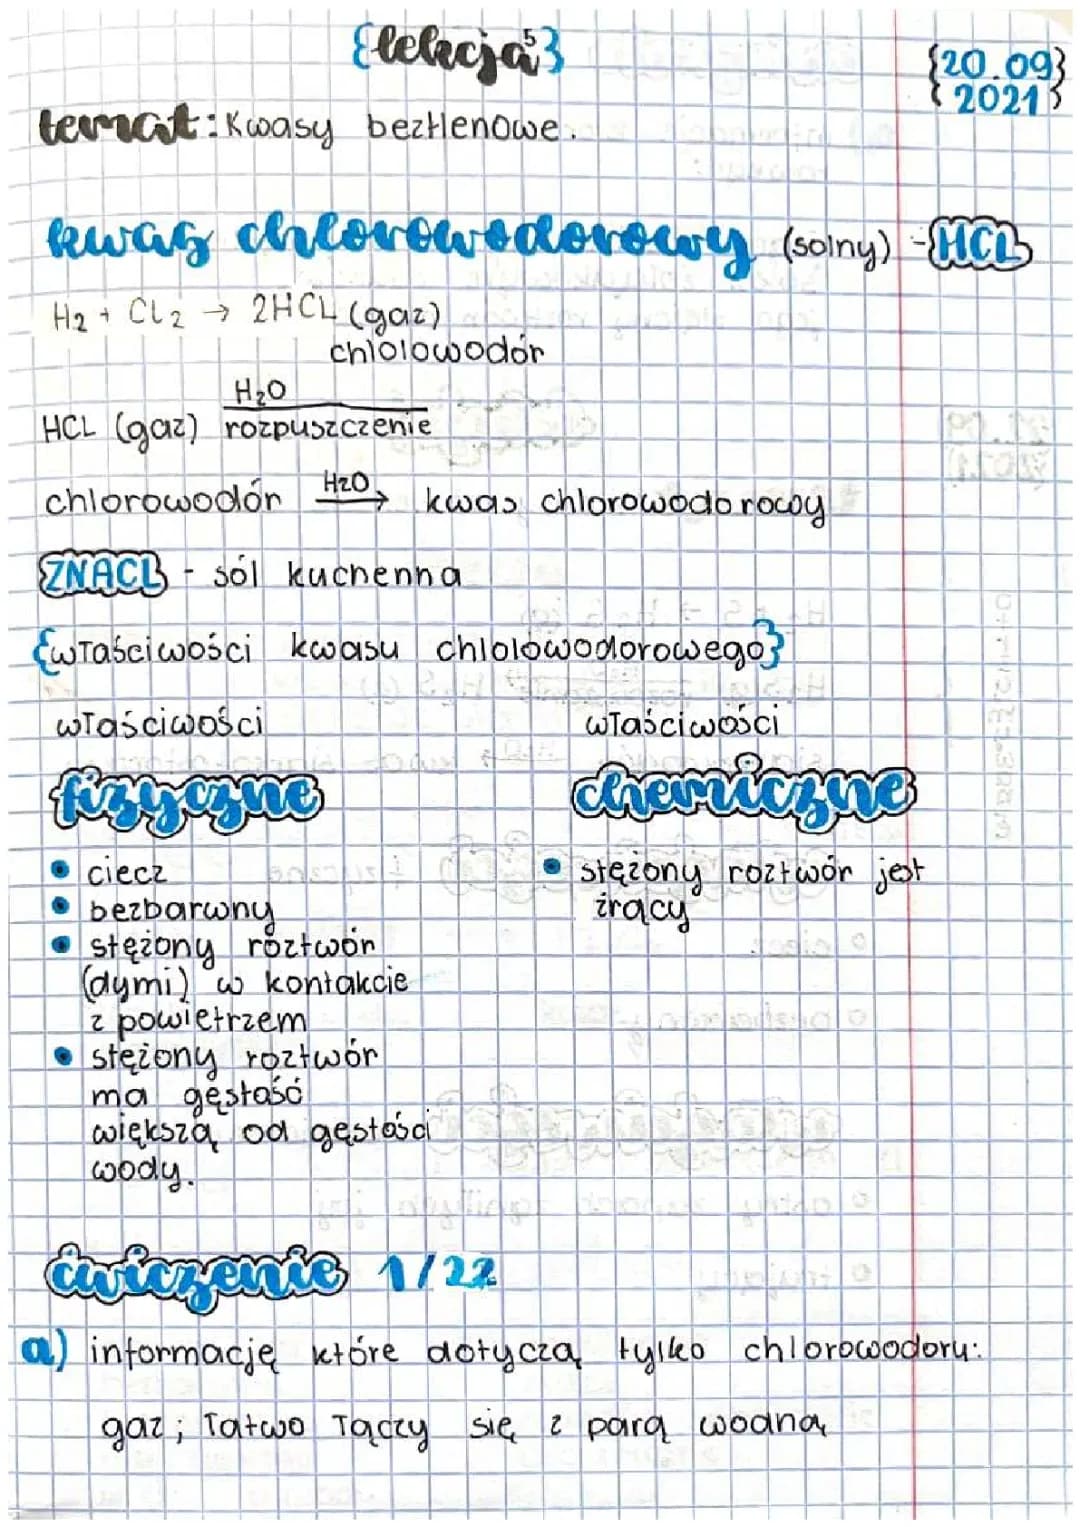 {lekcja 5}
{20.09
2021}
temat: Kwasy beztlenowe.
kwas chlorowodorowy (solny) - HCL
H2 + Cl2 → 2HCL (gaz)
chlolowodór
H2O
HCL (gaz) rozpuszczenie
chlorowodór H2O → kwas chlorowodorowy
{NACL} - sól kuchenna
{właściwości kwasu chlolowodorowego}
właściwości właściwości
fizyczne chemiczne
• ciecz • stężony roztwór jest
żrący
• bezbarwny
• stężony roztwór
(dymi) w kontakcie
z powietrzem
• stężony roztwór
ma gęstość
większą od gęstości
wody.
ćwiczenie 1/22
a) informację które dotyczą tylko chlorowodoru:
gaz; łatwo łączy się z parą wodną